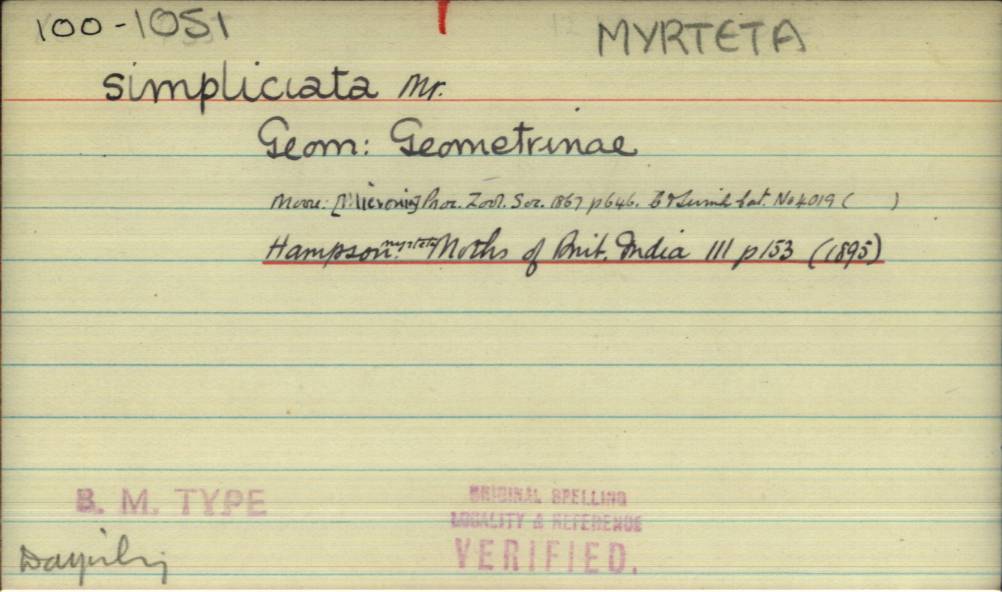 100-1051
MYRTETA
simpliciata Mr.
Geom: Geometrinae
Moore: [Micronia] Proc. Zool. Soc. 1867 p646. C & Swinh Cat. No 4019 ( )
Hampson: myrteta Moths of Brit. India III p153 (1895)
B. M. TYPE
ORIGINAL SPELLING
LOCALITY & REFERENCE
VERIFIED.